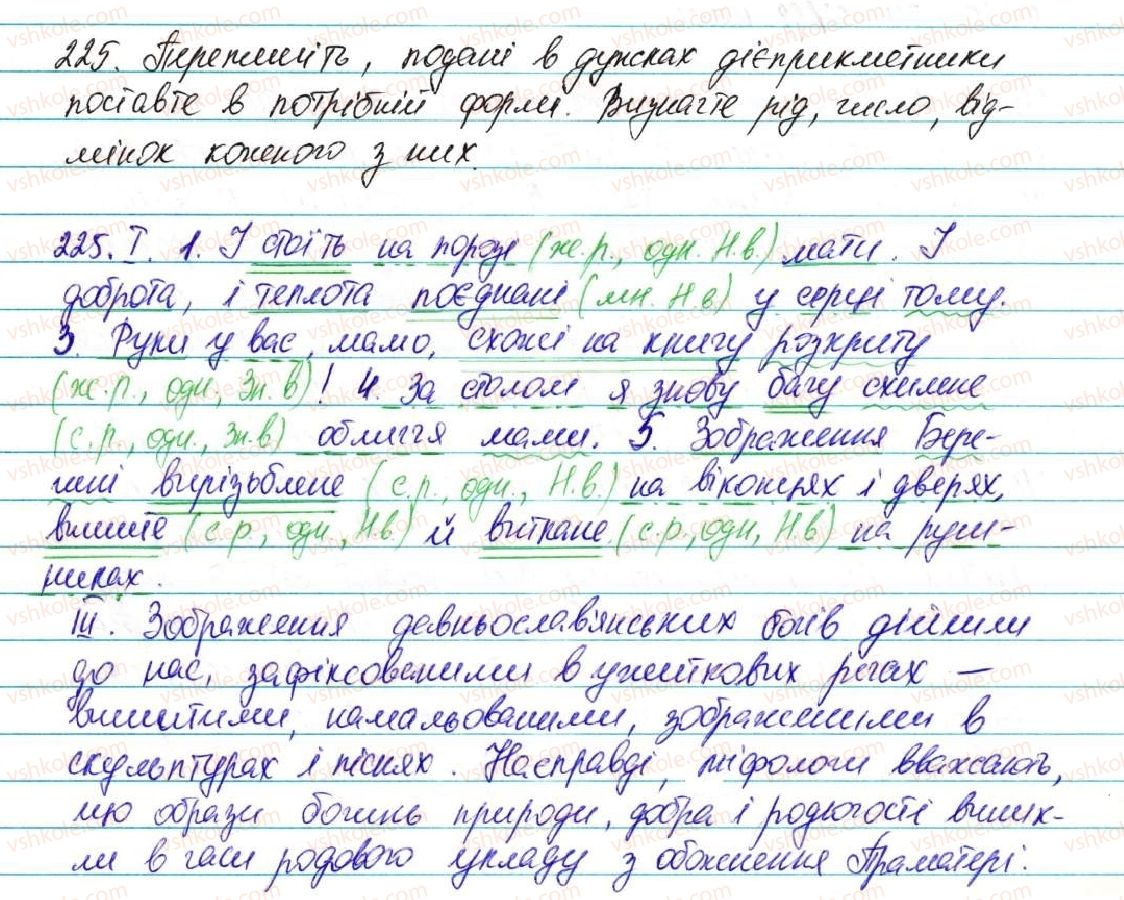 225. Перепишіть, подані в дужках дієприкметники
поставте в потрібній формі. Визначте рід, число, від-
мінок кожного з них.
225. I. 1. І стоїть на порозі (ж.р., одн. Н.в.) мати. І
доброта, і теплота поєднані (мн. Н.в) у серці тому.
3. Руки у вас, мамо, схожі на книгу розкриту
(ж.р., одн., Зн.в)! 4. За столом я знову бачу схилене
(с.р., одн., Зн.в) обличчя мами. 5. Зображення Бере-
гині вирізьблене (с.р., одн., Н.в.) на віконцях і дверях,
вишите (с.р., одн., Н.в.) й виткане (с.р., одн, Н.в) на руш-
никах.
III. Зображення давньослав'янських богів дійшли
до нас, зафіксованими в ужиткових речах –
вишитими, намальованими, зображеними в
скульптурах і піснях. Насправді, міфологи вважають,
що образи богинь природи, добра і родючості виник-
ли в часи родового укладу з обожнення Праматері.